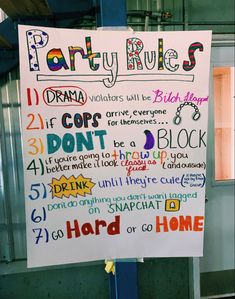 Party Rules
1) DRAMA violators will be Bitch slapped
2) if COPS arrive, everyone
for themselves...
3) DON'T be a BLOCK
4) if you're going to throw up, you
better make it look classy as
fuck (and outside)
5) DRINK until they're cute
6) Dont do anything you don't want tagged
on SNAPCHAT
7) GO HARD or GO HOME